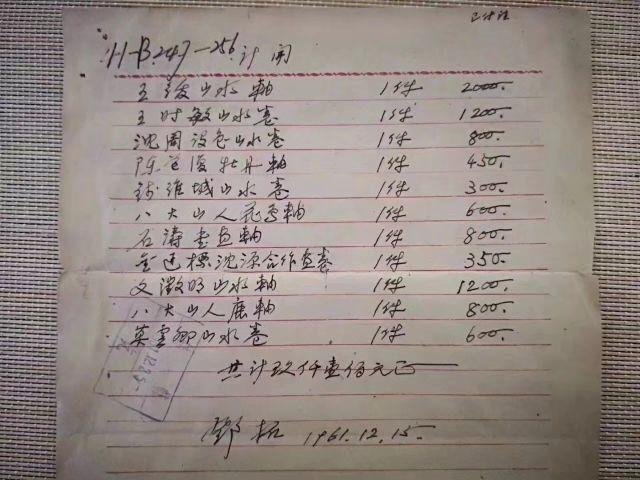 已付注
H-B247-256 计开
王翚山水軸 1件 2000.
王时敏山水卷 1件 1200.
沈周设色山水卷 1件 800.
陈道復牡丹軸 1件 450.
钱维城山水卷 1件 300.
八大山人花鸟軸 1件 600.
石涛书画軸 1件 800.
金廷标沈源合作画卷 1件 350.
文徵明山水軸 1件 1200.
八大山人鹿軸 1件 800.
莫雲卿山水卷 1件 600.
共计玖仟壹佰元正
鄧拓 1961.12.15.